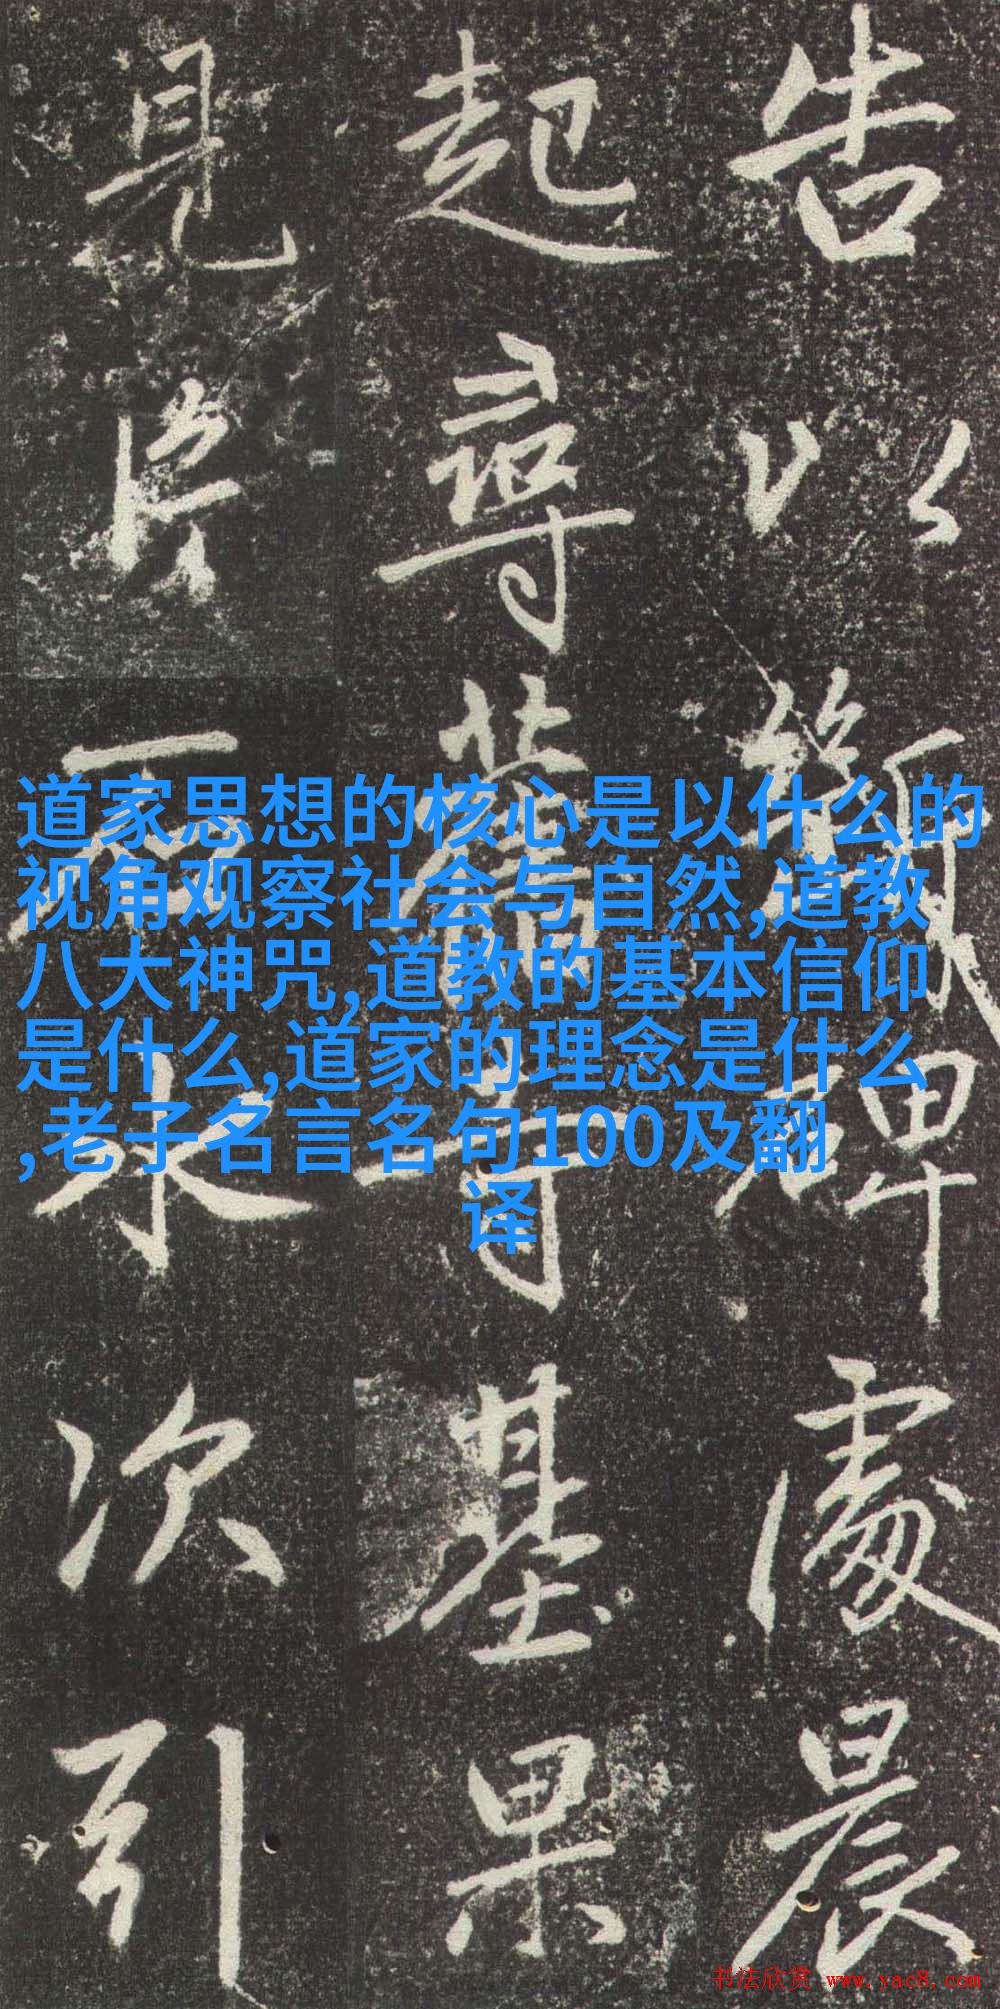 告以碑處晨
起尋舊寺基果
見片石水次引
道家思想的核心是以什么的
视角观察社会与自然,道教
八大神咒,道教的基本信仰
是什么,道家的理念是什么
,老子名言名句100及翻
译
书法欣赏 www.yac8.com